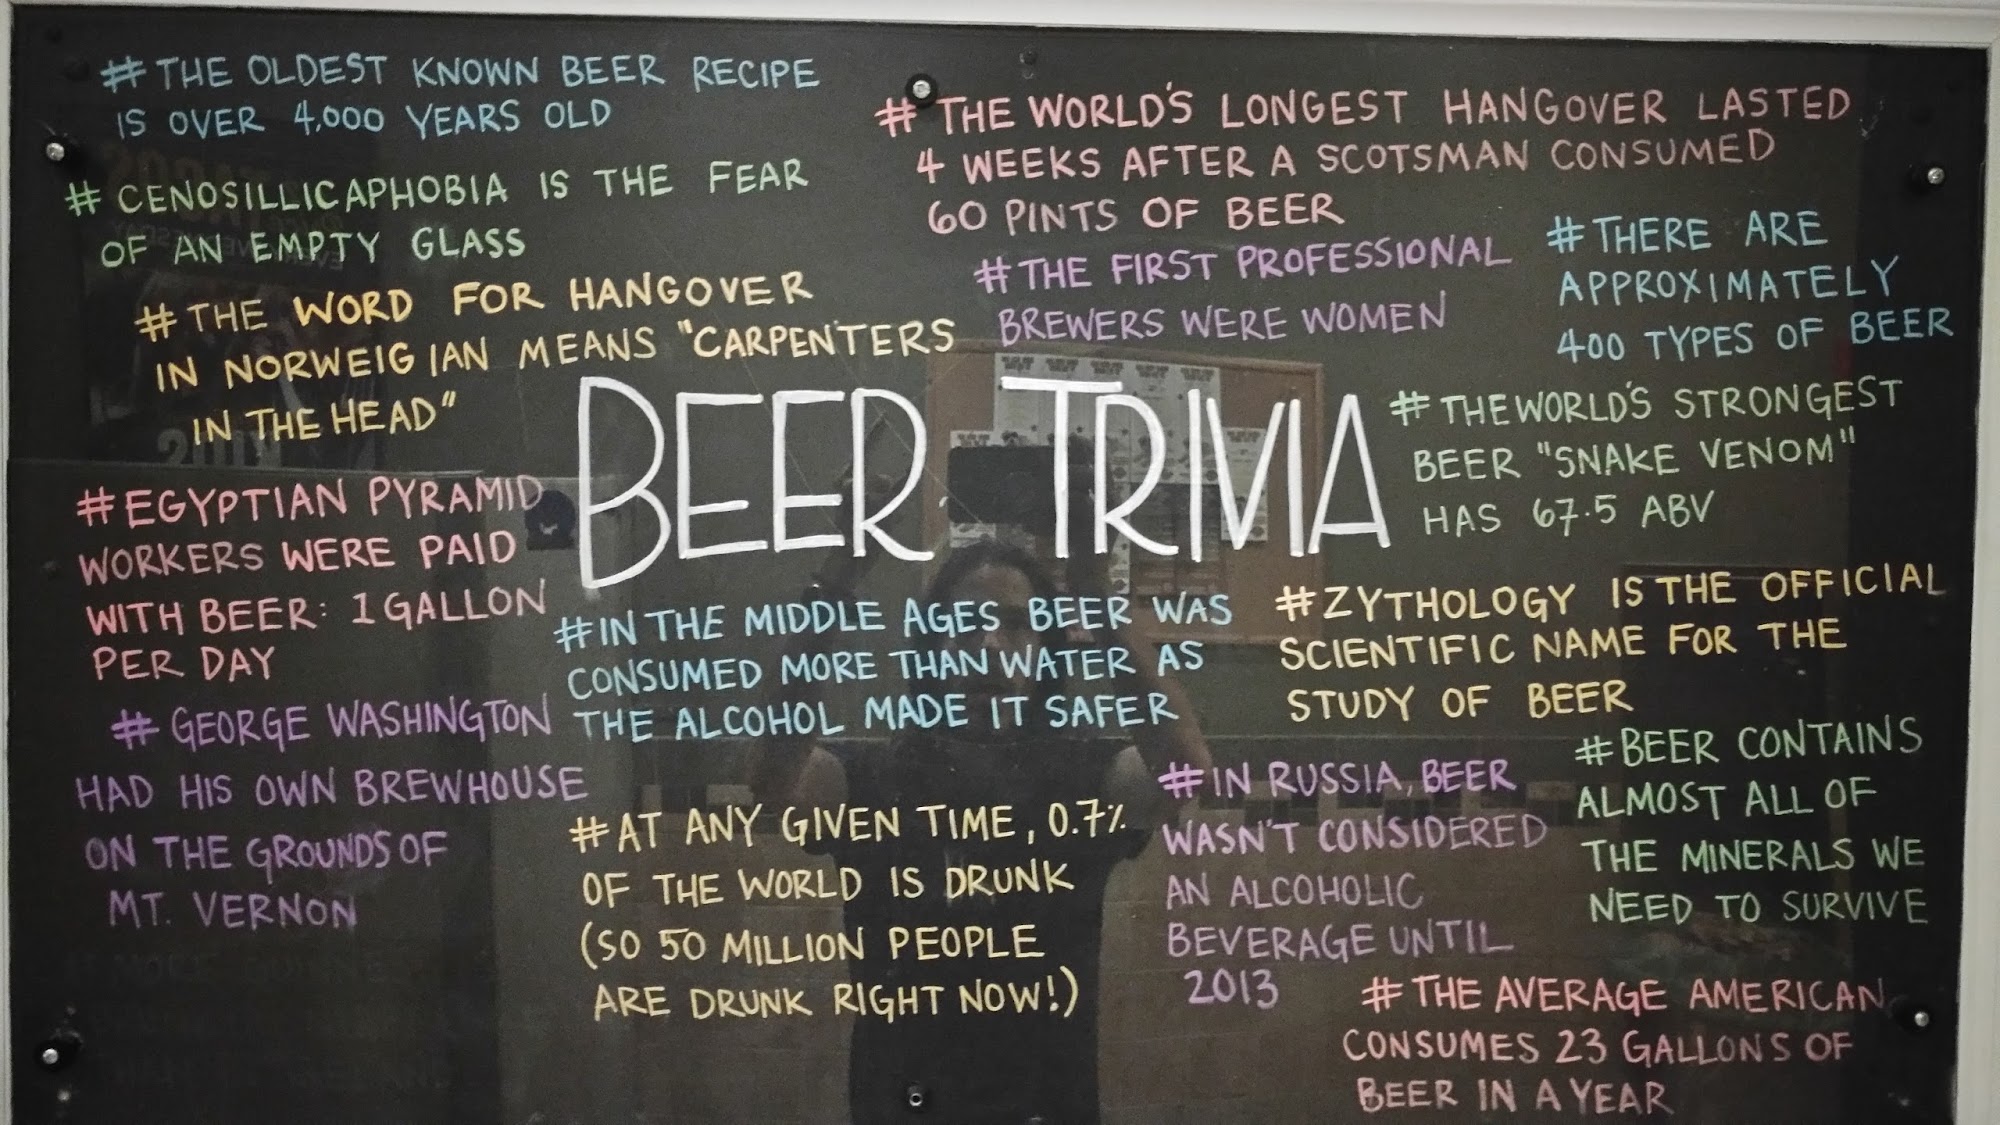 # THE OLDEST KNOWN BEER RECIPE
IS OVER 4,000 YEARS OLD
# CENOSILLICAPHOBIA IS THE FEAR
OF AN EMPTY GLASS
# THE WORD FOR HANGOVER
IN NORWEIGIAN MEANS "CARPENTERS
IN THE HEAD"
# THE WORLD'S LONGEST HANGOVER LASTED
4 WEEKS AFTER A SCOTSMAN CONSUMED
60 PINTS OF BEER
# THE FIRST PROFESSIONAL
BREWERS WERE WOMEN
# THERE ARE
APPROXIMATELY
400 TYPES OF BEER
BEER TRIVIA
# THE WORLD'S STRONGEST
BEER "SNAKE VENOM"
HAS 67.5 ABV
# EGYPTIAN PYRAMID
WORKERS WERE PAID
WITH BEER: 1 GALLON
PER DAY
# IN THE MIDDLE AGES BEER WAS
CONSUMED MORE THAN WATER AS
THE ALCOHOL MADE IT SAFER
# ZYTHOLOGY IS THE OFFICIAL
SCIENTIFIC NAME FOR THE
STUDY OF BEER
# GEORGE WASHINGTON
HAD HIS OWN BREWHOUSE
ON THE GROUNDS OF
MT. VERNON
# AT ANY GIVEN TIME, 0.7%
OF THE WORLD IS DRUNK
(SO 50 MILLION PEOPLE
ARE DRUNK RIGHT NOW!)
# IN RUSSIA, BEER
WASN'T CONSIDERED
AN ALCOHOLIC
BEVERAGE UNTIL
2013
# BEER CONTAINS
ALMOST ALL OF
THE MINERALS WE
NEED TO SURVIVE
# THE AVERAGE AMERICAN
CONSUMES 23 GALLONS OF
BEER IN A YEAR